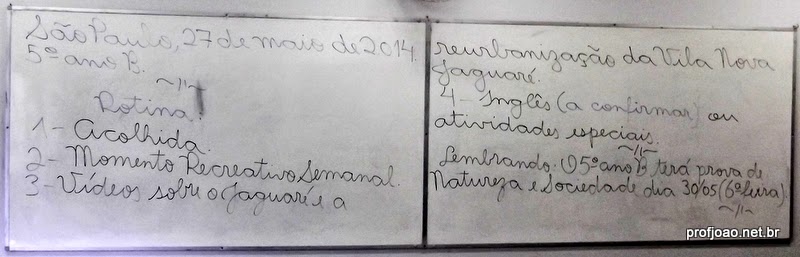 São Paulo, 27 de maio de 2014.
5º ano B.
~//~
Rotina:
1 - Acolhida.
2 - Momento Recreativo Semanal.
3 - Vídeos sobre o Jaguaré e a
reurbanização da Vila Nova
Jaguaré.
4 - Inglês (a confirmar) ou
atividades especiais.
~//~
Lembrando: O 5º ano B terá prova de
Natureza e Sociedade dia 30/05 (6ª feira).
~//~
profjoao.net.br